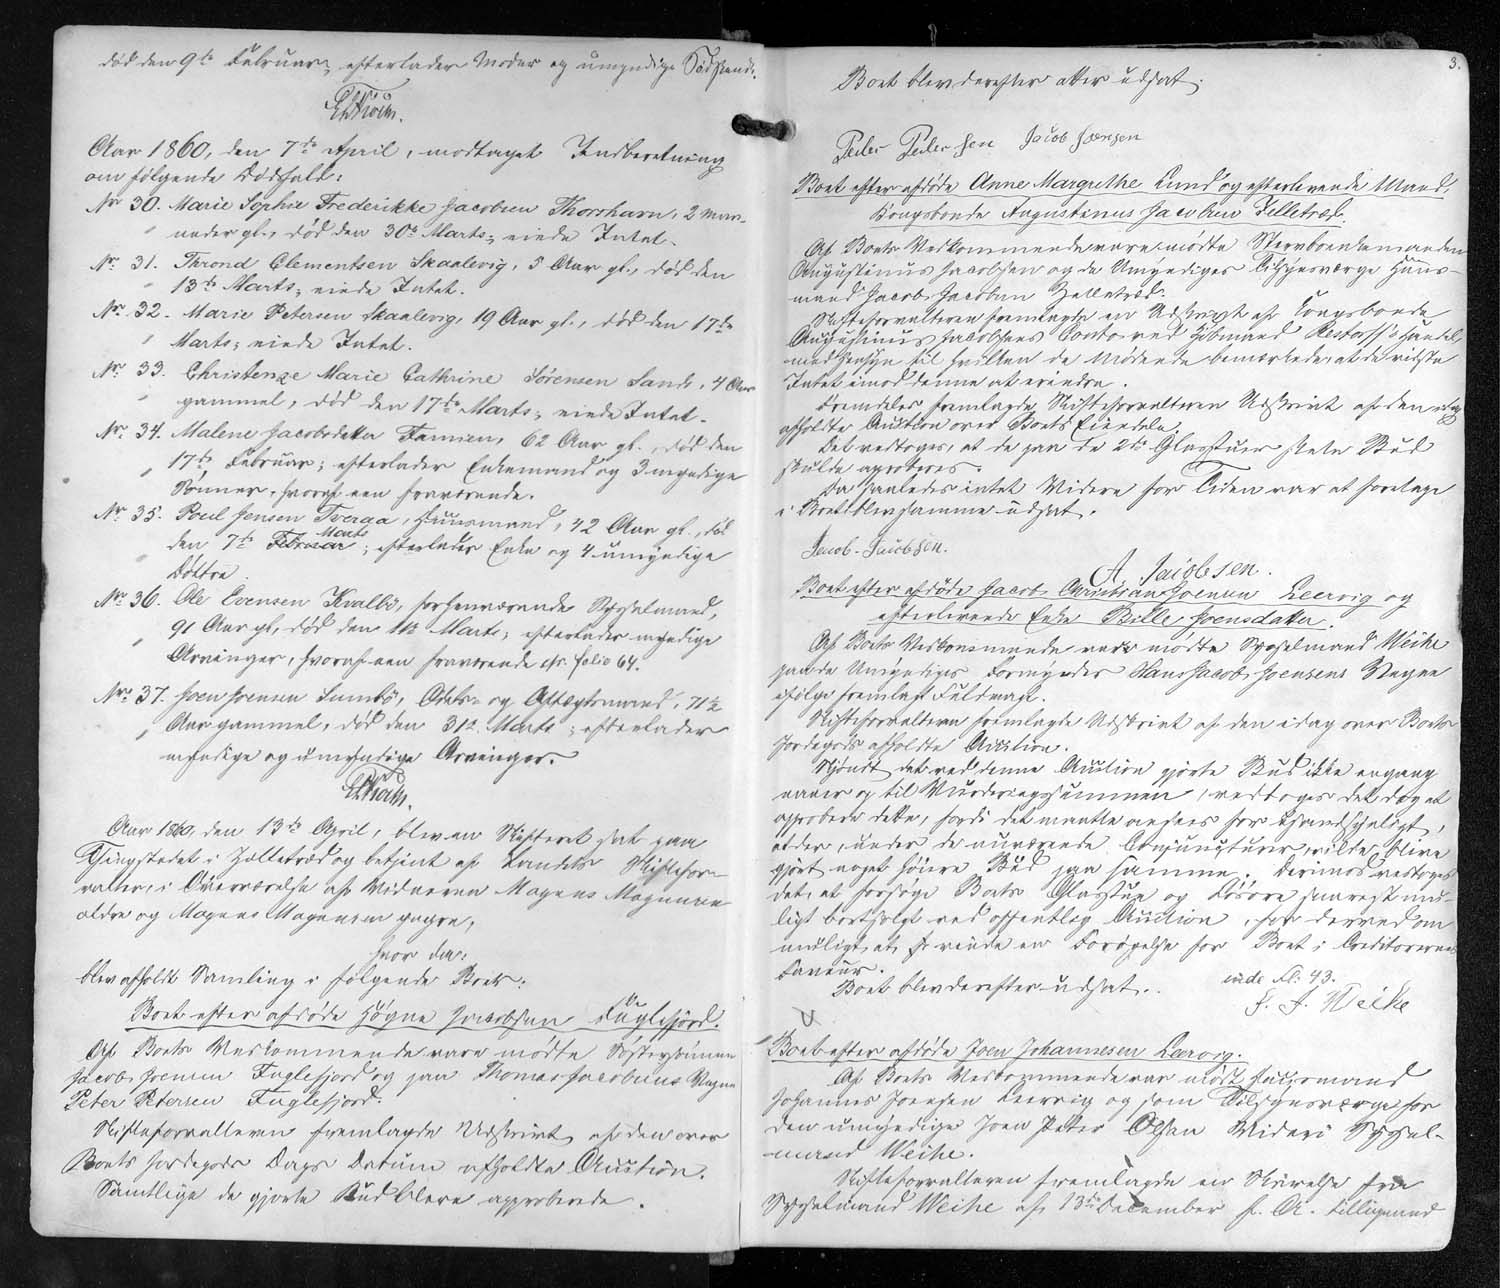 død den 9de Februar, efterlader Moder og umyndige Sødskende.
Aar 1860, den 7de April, modtaget Indberetning
om følgende Dødsfald:
No 30. Marie Sophie Frederikke Jacobsen Thorshavn, 2 Maa-
neder gl., død den 30te Marts; eiede Intet.
No. 31. Thrond Clementsen Skaalevig, 5 Aar gl., død den
" 13de Marts; eiede Intet.
No. 32. Marie Petersen Skaalevig, 19 Aar gl., død den 17de
" Marts; eiede Intet.
No. 33. Christenze Marie Cathrine Sørensen Sand, 4 Aar
" gammel, død den 17de Marts; eiede Intet.
No. 34. Malene Jacobsdatter Famien, 62 Aar gl., død den
" 17de Februar; efterlader Enkemand og 3 myndige
Sønner, hvoraf een fraværende.
No. 35. Poul Jensen Tveraa, Huusmand, 42 Aar gl., død
" den 7de Februar Marts; efterlader Enke og 4 umyndige
Døttre
No. 36. Ole Evensen Kvalbø, forhenværende Sysselmand,
" 91 Aar gl., død den Marts; efterlader myndige
Arvinger, hvoraf een fraværende cfr. folio 64.
No. 37. Joen Joensen Sumbø, Odels- og Aftægtsmand, 71½
" Aar gammel, død den 31te Marts; efterlader
myndige og umyndige Arvinger.
Aar 1860, den 13de April, blev en Skifteret sat paa
Thingstedet i Zelletræd og betjent af Landets Skiftefor-
valter, i Overværelse af Vidnerne Magnus Magnussen
ældre og Magnus Magnussen yngre,
hvor da:
blev afholdt Samling i følgende Boer:
Boet efter afdøde Høgne Jacobsen Fuglefjord.
Af Boets Vedkommende vare mødte Søstersønnen
Jacob Joensen Fuglefjord og paa Thomas Jacobsens Vegne
Peter Petersen Fuglefjord.
Skifteforvalteren fremlagde Udskrivt af den over
Boets Jordegods Dags Datum afholdte Auction.
Samtlige de gjorte Bud bleve approberede.
3.
Boet blev derefter atter udsat.
Peder Pedersen Jacob Joensen
Boet efter afdøde Anne Margrethe Lund og efterlevende Mand,
Kongsbonde Augustinus Jacobsen Zelletræd.
Af Boets Vedkommende vare mødte Stervboenkemanden
Augustinus Jacobsen og de Umyndiges Tilsynsværge Huus-
mand Jacob Jacobsen Zelletræd.
Skifteforvalteren fremlagde en Udskrivt af Kongsbonde
Augustinus Jacobsens Conto ved Kjøbmand Restorff's Handel,
med Hensyn til hvilken de Mødende bemærkede, at de vidste
Intet imod denne at erindre.
Fremdeles fremlagde Skifteforvalteren Udskrivt af den idag
afholdte Auction over Boets Eiendele.
Det vedtoges, at de paa de 2de Glasstuer skete Bud
skulde approberes.
Da saaledes intet Videre for Tiden var at foretage
i Boet blev samme udsat.
Jacob Jacobsen. A. Jacobsen.
Boet efter afdøde Jacob Christian Joensen Leervig og
efterlevende Enke Bille Joensdatter.
Af Boets Vedkommende var mødte Sysselmand Weihe
paa de Umyndiges Formynder Hans Jacob Joensens Vegne
ifølge fremlagt Fuldmagt.
Skifteforvalteren fremlagde Udskrivt af den idag over Boets
Jordegods afholdte Auction.
Skjøndt det ved denne Auction gjorte Bud ikke engang
naaer op til Vurderingssummen, vedtoges det dog at
approbere dette, fordi det maatte ansees for usandsynligt,
at der, under de nuværende Conjuncturer, vilde blive
gjort noget høiere Bud paa samme. Derimod vedtoges
det, at forsøge Boets Glasstue og Løsøre snarest mu-
ligt bortsolgt ved offentlig Auction, for derved om
muligt, at vinde en Forøgelse for Boet i Creditorernes
Faveur.
Boet blev derefter udsat. vide Fl. 43.
J. J. Weihe
Boet efter afdøde Joen Johannesen Leervig.
Af Boets Vedkommende var mødt Huusmand
Johannes Joensen Leervig og som Tilsynsværge for
den umyndige Joen Peter Olsen Syssel-
mand Weihe.
Skifteforvalteren fremlagde en Skrivelse fra
Sysselmand Weihe af 13de December f. A. tilligemed